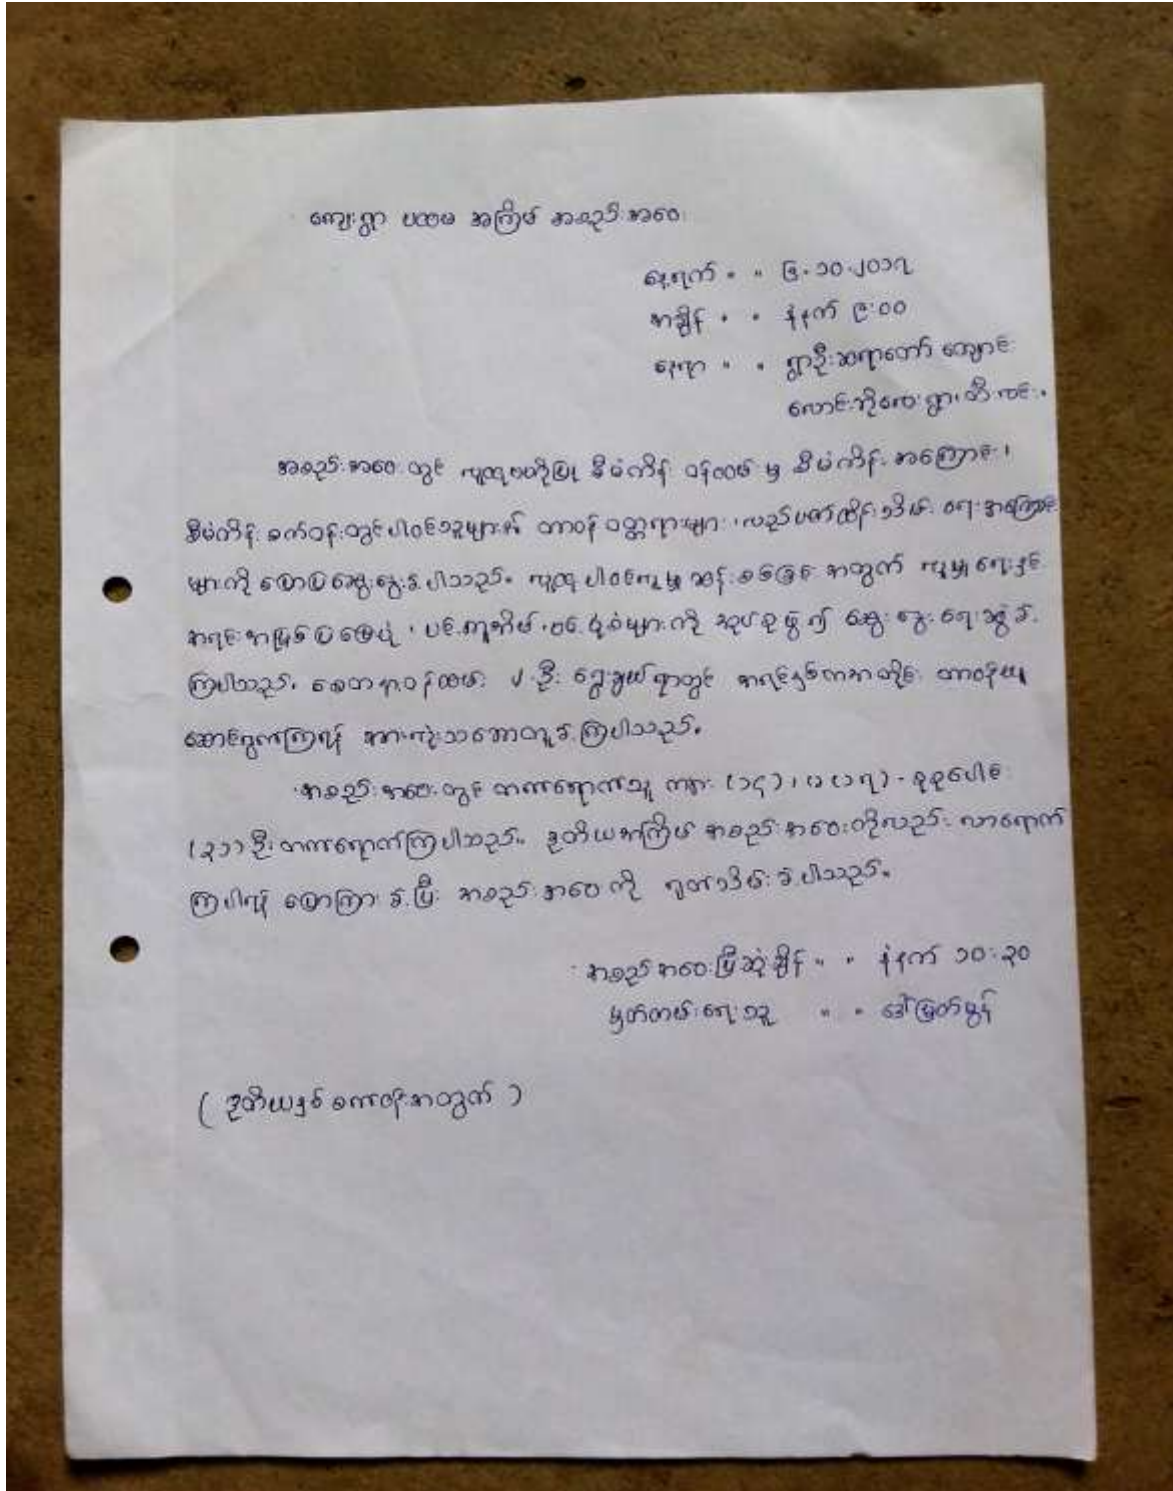 ကျေးရွာ ပထမ အကြိမ် အစည်းအဝေး
နေ့ရက် " " ၆.၁၀.၂၀၁၇
အချိန် " " နံနက် ၉:၀၀
နေရာ " " ရွာဦးဆရာတော် ကျောင်း
လောင်းဘိုလေးရွာ၊ ထီးလင်း။
အစည်းအဝေးတွင် လူထုဗဟိုပြု စီမံကိန်း ဝန်ထမ်းမှ စီမံကိန်းအကြောင်း၊
စီမံကိန်း စက်ဝန်းတွင်ပါဝင်သူများ၏ တာဝန် ဝတ္တရားများ၊ လည်ပတ်ထိန်းသိမ်းရေးအကြောင်း
များကို ပြောပြဆွေးနွေးခဲ့ပါသည်။ လူထုပါဝင်လူမှုဆန်းစစ်ခြင်းအတွက် လူမှုရေးနှင့်
အရင်းအမြစ်ပြမြေပုံ၊ ပင့်ကူအိမ်၊ ဝင်ရိုးပုံစံများကို အုပ်စုဖွဲ့၍ ဆွေးနွေးရေးဆွဲခဲ့
ကြပါသည်။ စေတနာ့ဝန်ထမ်း ၂ ဦး ရွေးချယ်ရာတွင် အရင်နှစ်ကအတိုင်း တာဝန်ယူ
ဆောင်ရွက်ကြရန် အားလုံးသဘောတူခဲ့ကြပါသည်။
အစည်းအဝေးတွင် တက်ရောက်သူ ကျား (၁၄)၊ မ (၁၇) - စုစုပေါင်း
(၃၁) ဦး တက်ရောက်ကြပါသည်။ ဒုတိယအကြိမ် အစည်းအဝေးကိုလည်း လာရောက်
ကြပါရန် ပြောကြားခဲ့ပြီး အစည်းအဝေးကို ရုတ်သိမ်းခဲ့ပါသည်။
အစည်းအဝေးပြီးဆုံးချိန် " " နံနက် ၁၀:၃၀
မှတ်တမ်းရေးသူ " " ဒေါ်မြတ်မွန်
( ဒုတိယနှစ် စက်ဝန်းအတွက် )